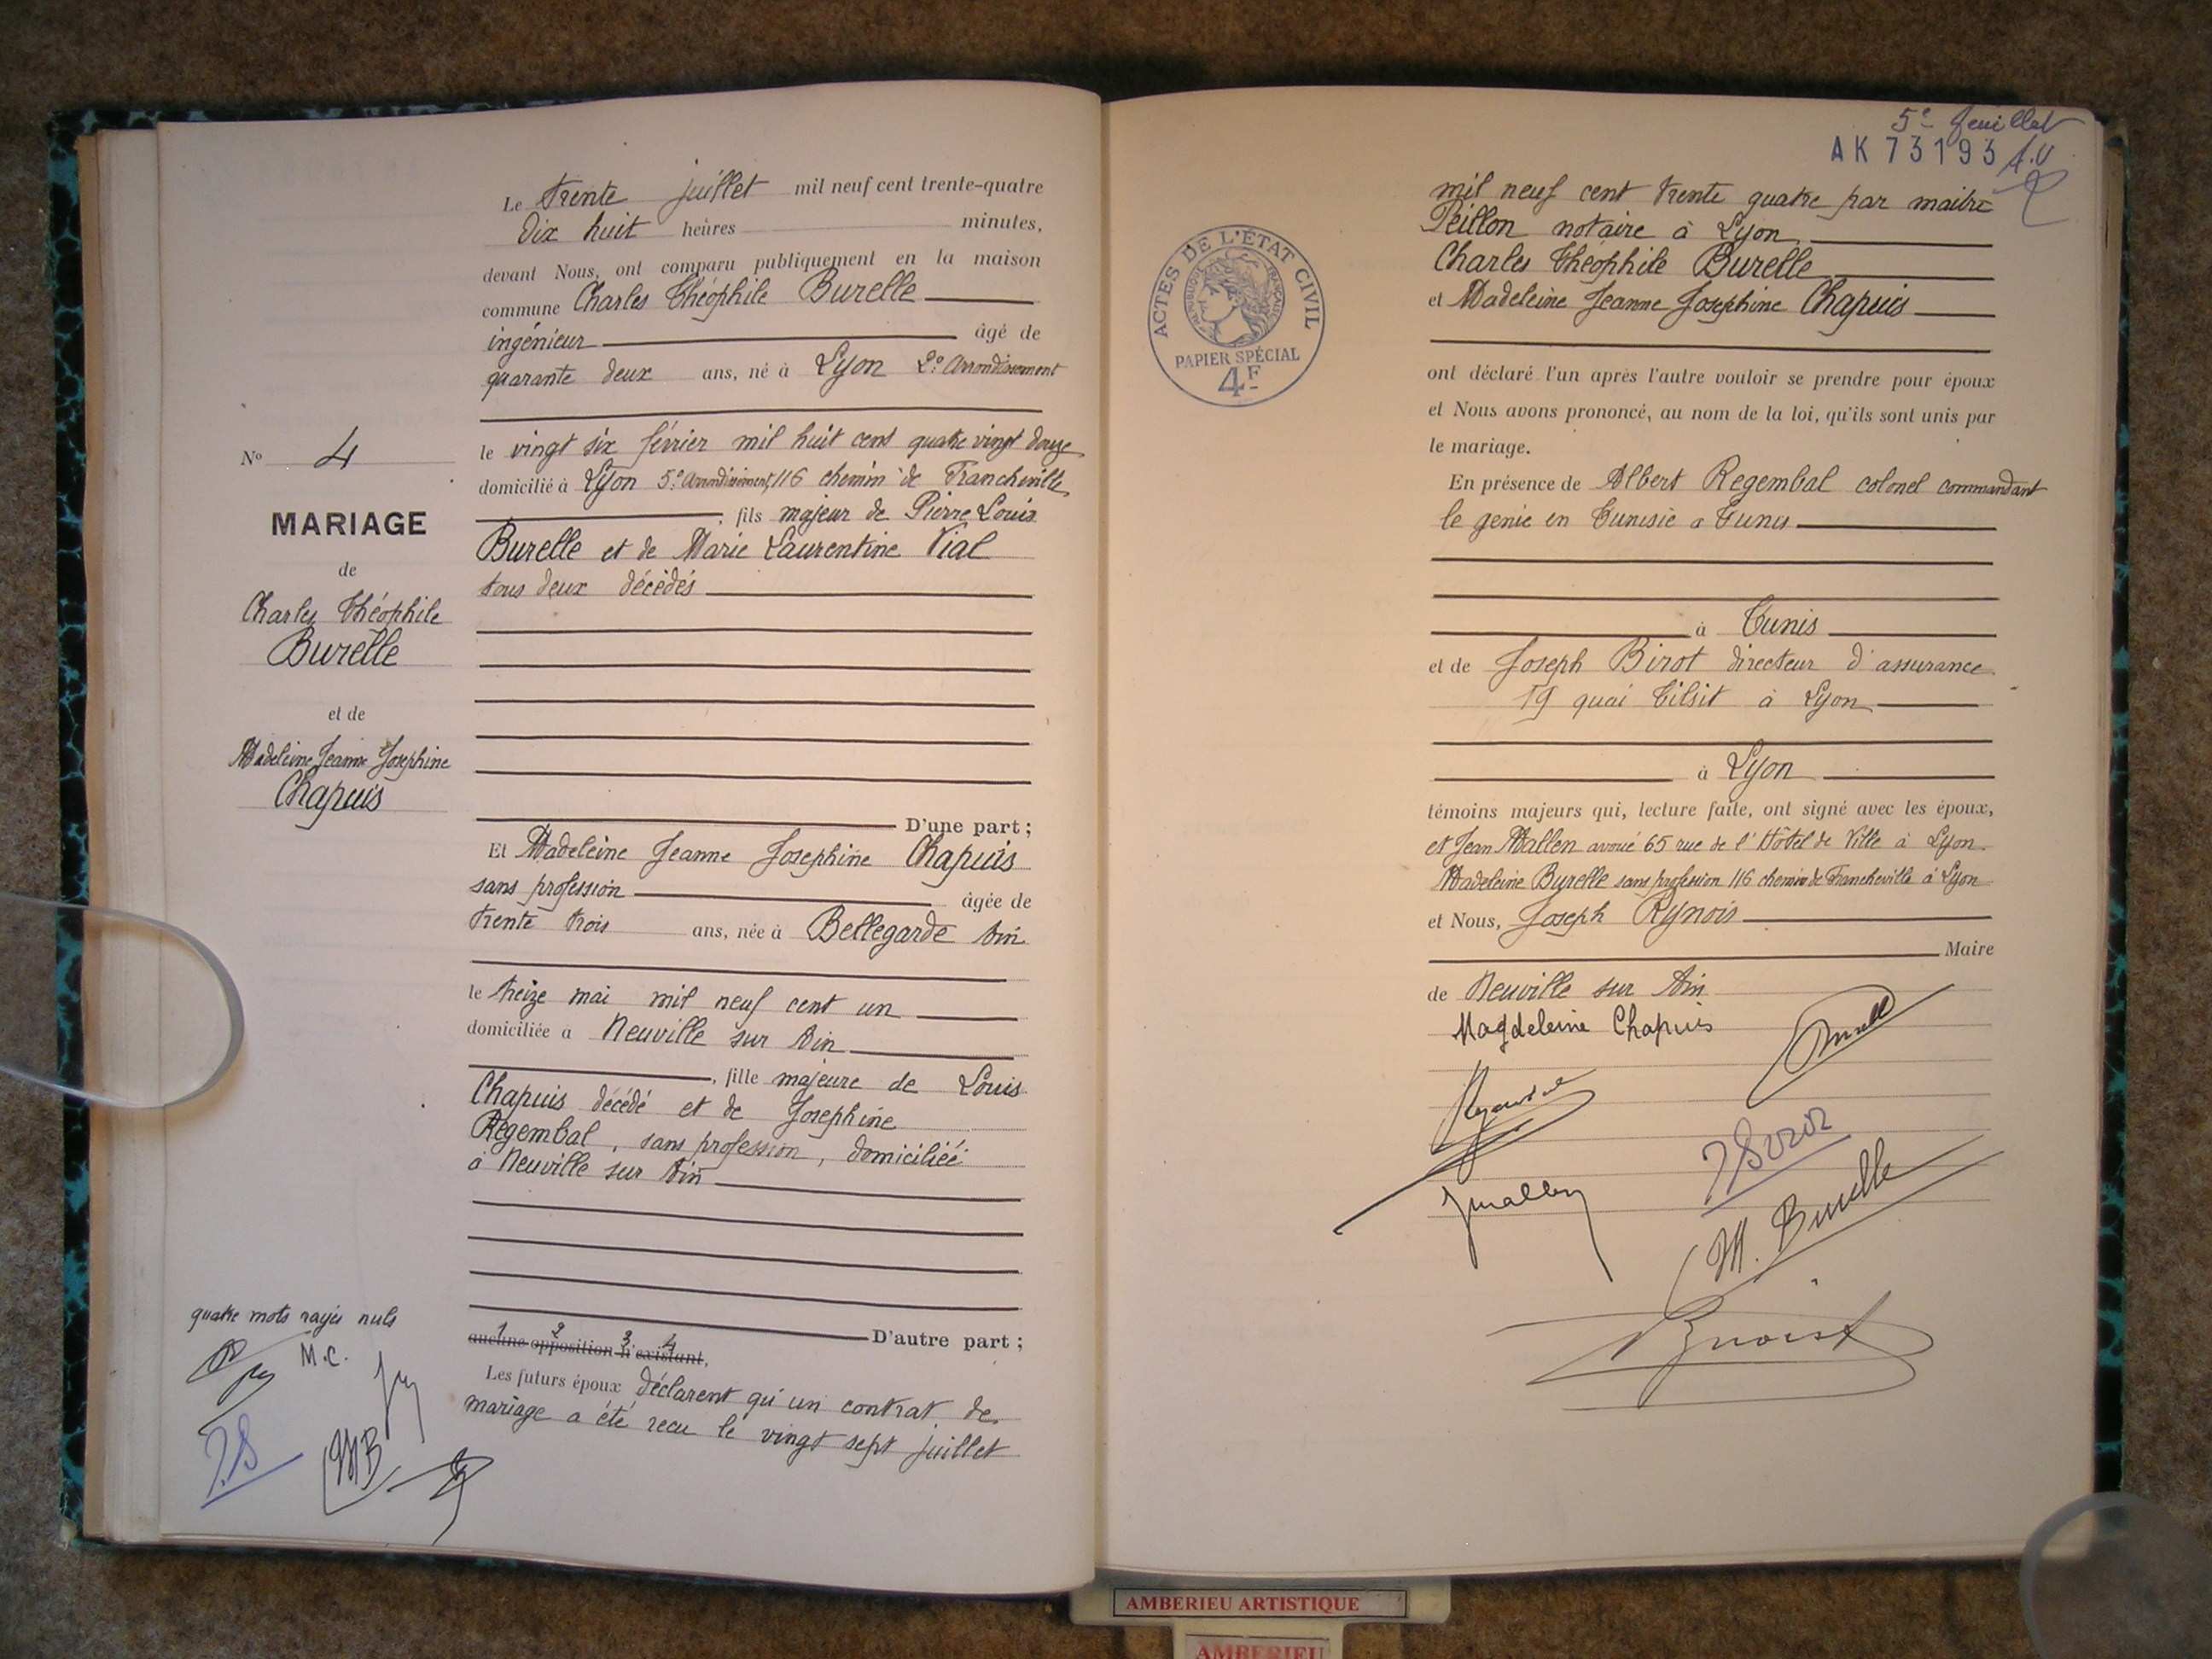 Le trente juillet mil neuf cent trente-quatre
Dix huit heures minutes,
devant Nous, ont comparu publiquement en la maison
commune Charles Théophile Burelle
ingénieur âgé de
quarante deux ans, né à Lyon 2e Arrondissement
le vingt six février mil huit cent quatre vingt douze
domicilié à Lyon 5e Arrondissement, 116 chemin de Francheville
, fils majeur de Pierre Louis
Burelle et de Marie Laurentine Vial
tous deux décédés
D'une part ;
Et Madeleine Jeanne Josephine Chapuis
sans profession âgée de
trente trois ans, née à Bellegarde Ain
le treize mai mil neuf cent un
domiciliée à Neuville sur Ain
, fille majeure de Louis
Chapuis décédé et de Josephine
Regembal, sans profession, domiciliée
à Neuville sur Ain
D'autre part ;
1 2 3 4
aucune opposition n'existant,
Les futurs époux déclarent qu'un contrat de
mariage a été recu le vingt sept juillet
No 4
MARIAGE
de
Charles Théophile
Burelle
et de
Madeleine Jeanne Josephine
Chapuis
quatre mots rayés nuls
M.C.
J.B
MB
5e feuillet
AK 73193
mil neuf cent trente quatre par maitre
Peillon notaire à Lyon
Charles Théophile Burelle
et Madeleine Jeanne Josephine Chapuis
ont déclaré l'un après l'autre vouloir se prendre pour époux
et Nous avons prononcé, au nom de la loi, qu'ils sont unis par
le mariage.
En présence de Albert Regembal colonel commandant
le genie en Tunisie a Tunis
à Tunis
et de Joseph Birot directeur d'assurance
19 quai Tilsit à Lyon
à Lyon
témoins majeurs qui, lecture faite, ont signé avec les époux,
et Jean Mallen avoué 65 rue de l'Hôtel de Ville à Lyon
Madeleine Burelle sans profession 116 chemin de Francheville à Lyon
et Nous, Joseph Rynois
Maire
de Neuville sur Ain
Magdeleine Chapuis
Burelle
J Birot
Jmallen
M. Burelle
ACTES DE L'ÉTAT CIVIL
RÉPUBLIQUE FRANÇAISE
PAPIER SPÉCIAL
4F
AMBERIEU ARTISTIQUE
AMBERIEU